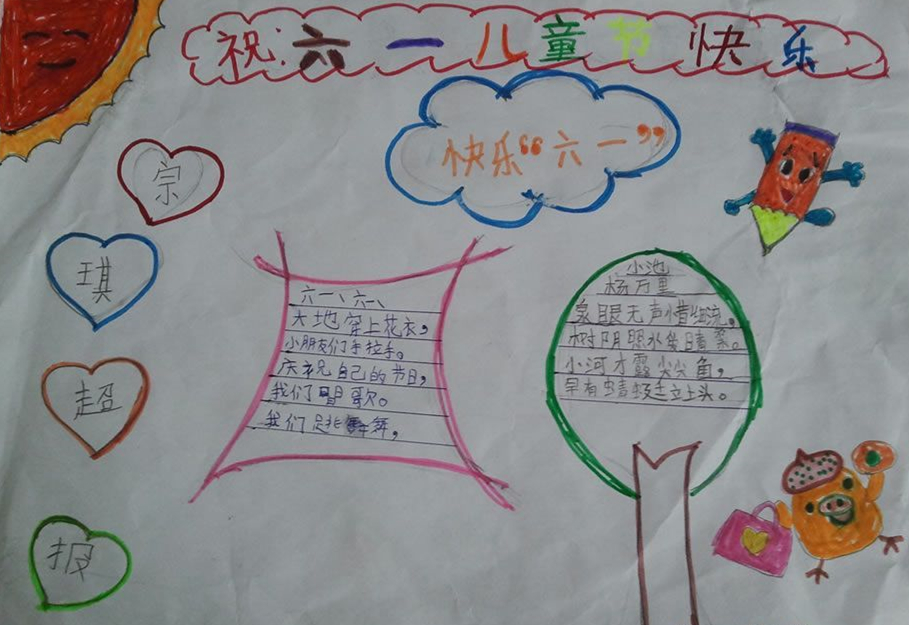 祝六一儿童节快乐
快乐“六一”
宗
琪
超
报
六一、六一、
大地穿上花衣，
小朋友们手拉手。
庆祝自己的节日，
我们唱歌。
我们是北舞，
小池
杨万里
泉眼无声惜细流，
树阴照水爱晴柔。
小河才露尖尖角，
早有蜻蜓立上头。